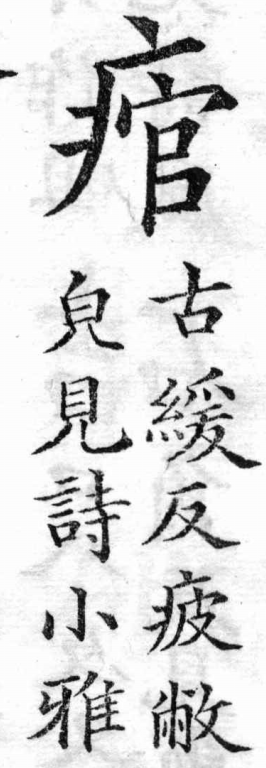 痯
古緩反疲敝
皃見詩小雅